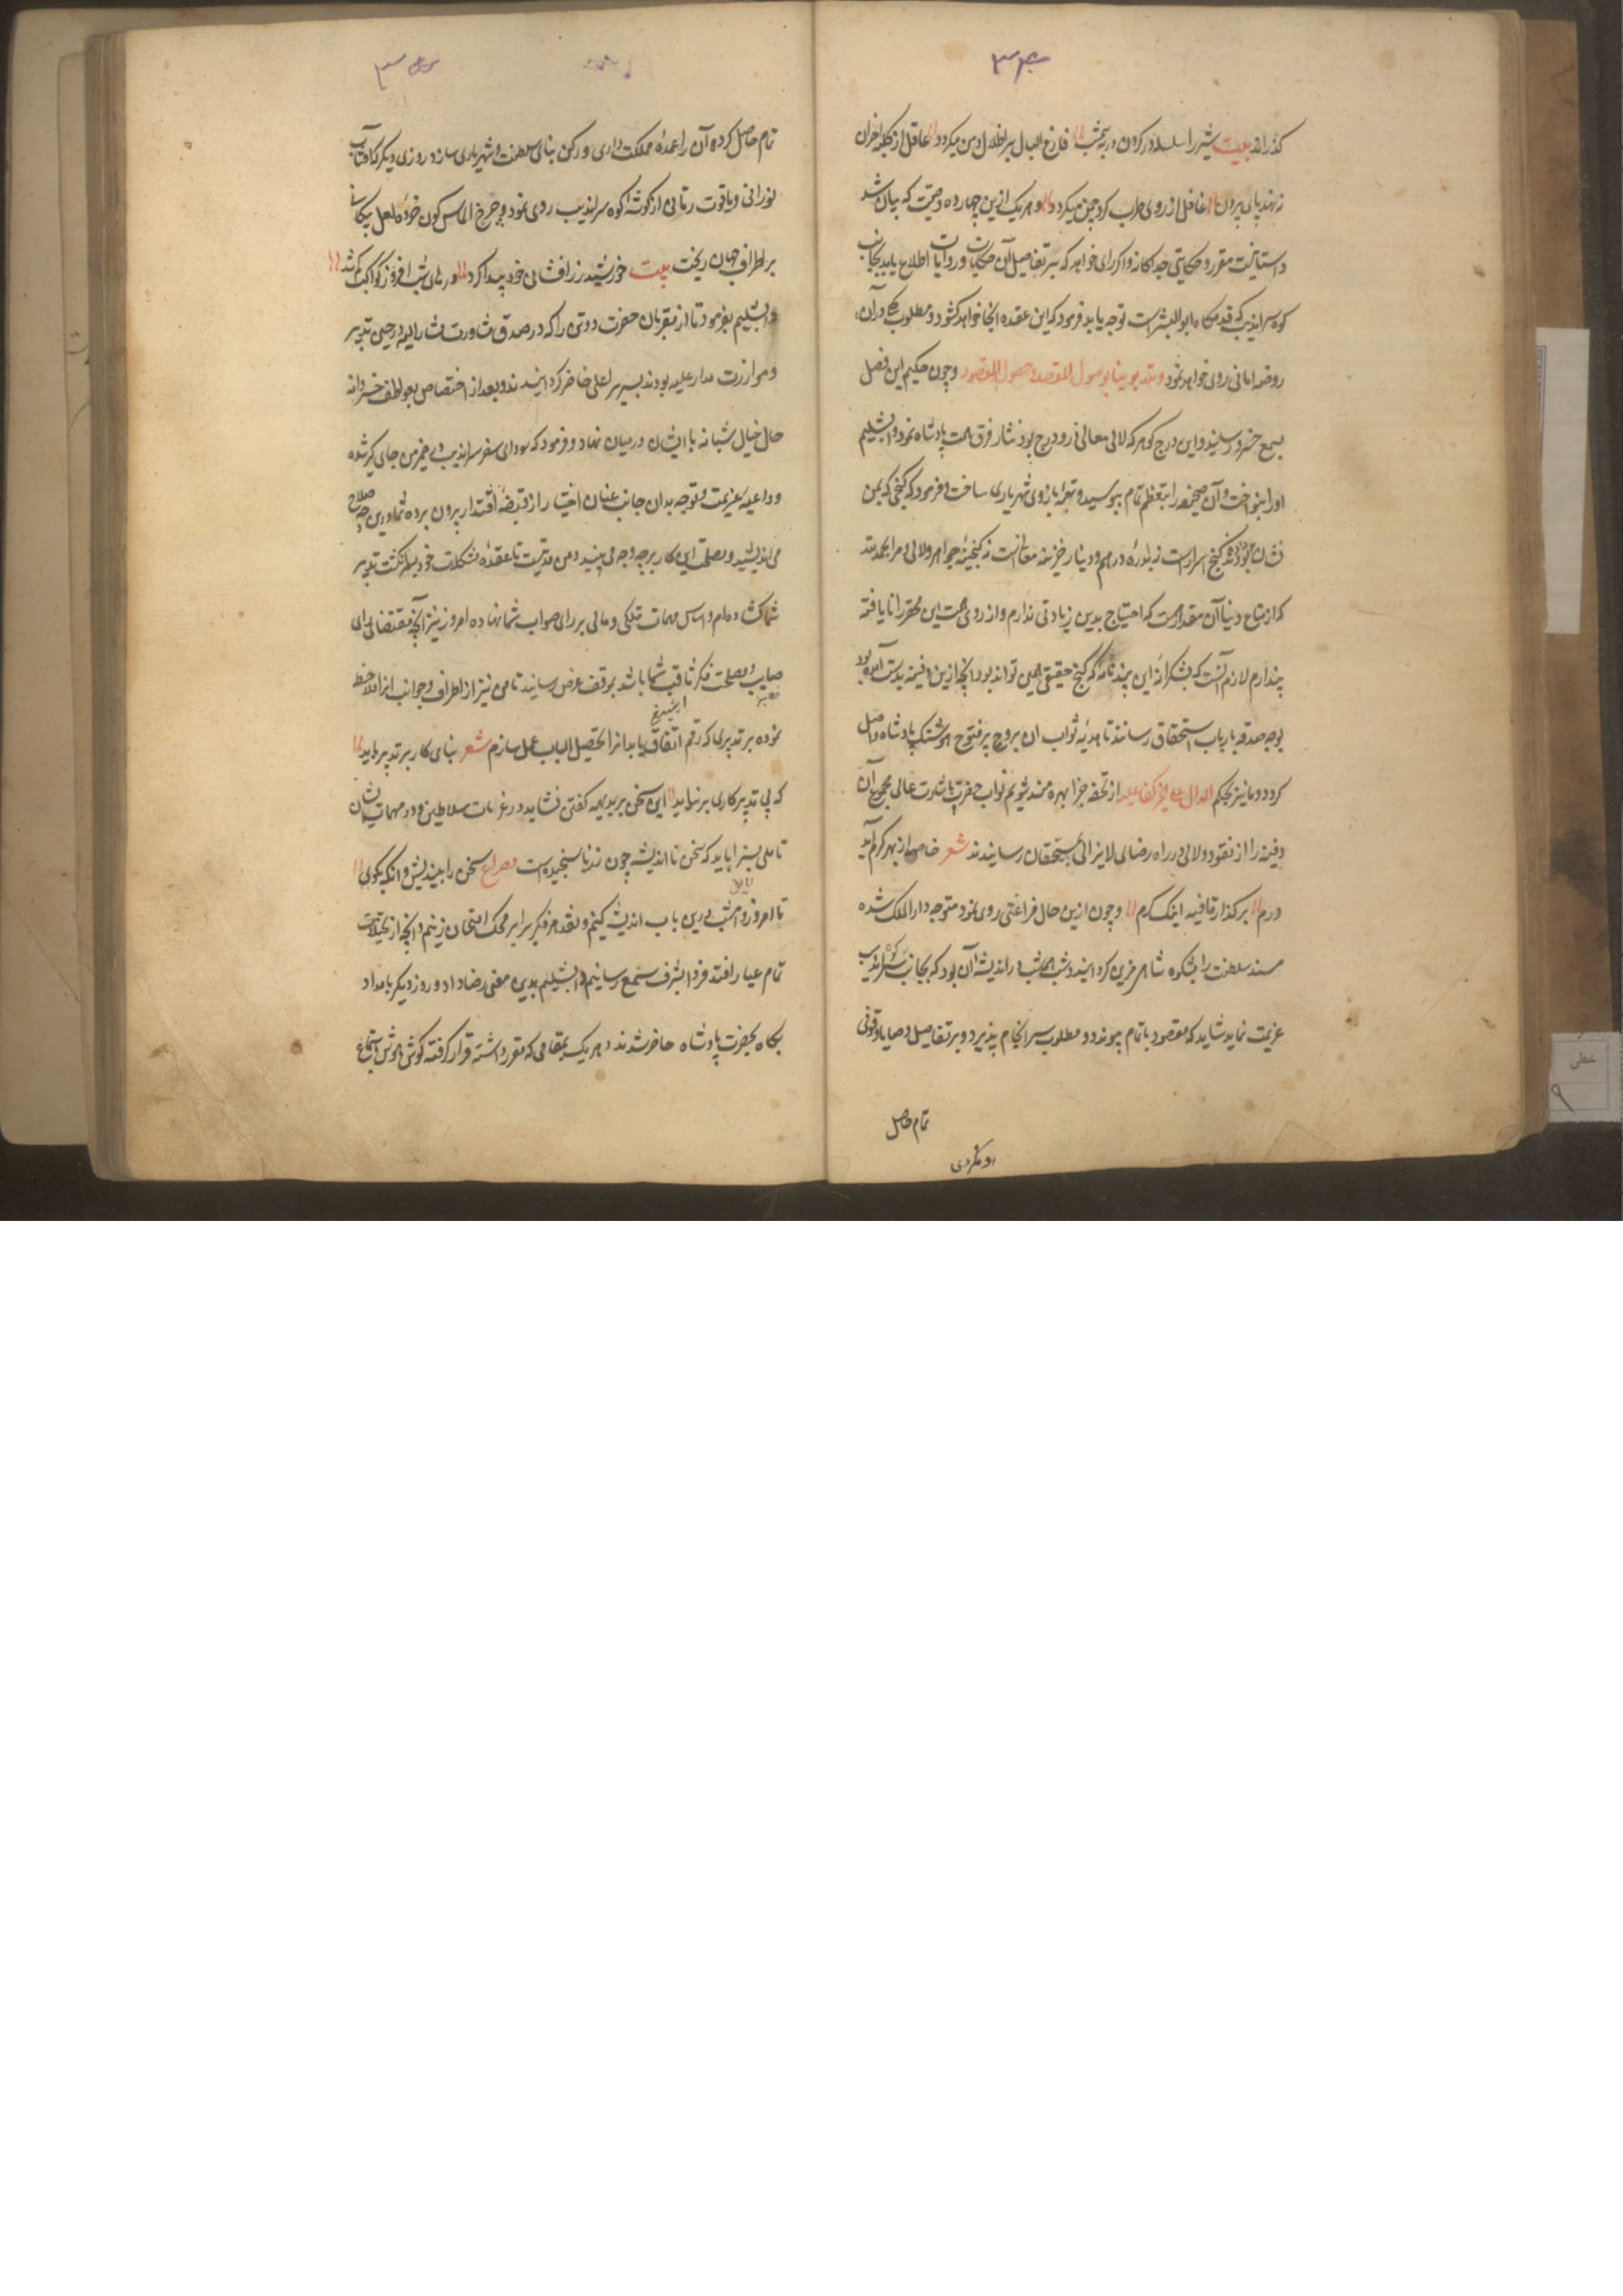 ۳۴
گذراند بیت شیر را سلسله در گردن و روبه همه شب // فارغ البال بر اطلال و دمن میگردد // عاقل از کلبه احزان
ننهد پای برون // غافل از روی طرب گرد چمن میگردد // و هر یک ازین چهارده وصیت که بیان شد
داستانیست مقرر و حکایتی جداگانه و اگر رای خواهد که بر تفاصیل آن حکایات و روایات اطلاع یابد بجانب
کوه سراندیب که قدمگاه ابوالبشر است توجه باید فرمود که این عقده آنجا خواهد گشود و مطلوب کلی در آن
روضه امانی روی خواهد نمود و حصول المقصود و چون حکیم این فصل
بسمع خسرو رسانید و این درج گوهر که لالی معانی درو درج بود نثار فرق همت پادشاه نمود دابشلیم
او را بنواخت و آن صحیفه را بتعظیم تمام ببوسید و تعویذ بازوی شهریاری ساخت و فرمود که گنجی که بمن
نشان داده بودند گنج اسرارست نه بدره درهم و دینار خزینه معانیست نه گنجینه جواهر و لالی و مرا بحمد الله
که از متاع دنیا آن مقدار هست که احتیاج بدین زیادتی ندارم و از روی همت این محقر را نایافته
پندارم لازم آنست که بشکرانه این پندنامه که گنج حقیقی همین تواند بود آنچه ازین دفینه بدست آمده بود
بوجه صدقه بارباب استحقاق رسانند تا هدیه ثواب آن بروح پرفتوح هوشنگ پادشاه واصل
گردد و ما نیز بحکم الدال علی الخیر کفاعله از تحفه جزا بهره‌مند شویم نواب حضرت باشارت عالی مجموع آن
دفینه را از نقود و لالی در راه رضای لایزالی بمستحقان رسانیدند شعر خاصه از بهر کرم آید
درم // برگذار قافیه اینک کرم // و چون ازین حال فراغتی روی نمود متوجه دارالملک شده
مسند سلطنت را بشکوه شاهی مزین گردانید و شب همه شب در اندیشه آن بود که بجانب کوه سراندیب
عزیمت نماید شاید که مقصود باتمام پیوندد و مطلوب سرانجام پذیرد و بر تفاصیل وصایا وقوفی
تمام حاصل
۳۵
تمام حاصل کرده آن را عمده مملکت داری و رکن بنای سلطنت و شهریاری سازد روزی دیگر که آفتاب
نورانی و یاقوت رمانی از گوشه کوه سراندیب روی نمود و چرخ الماس گون خرده لعل پیکانی
بر اطراف جهان ریخت بیت خورشید زرافشانی خود پیدا کرد // درهای شب افروز کواکب گم شد //
دابشلیم بفرمود تا از مقربان حضرت دو تن را که در صدق مشاورت مشار الیه و در حسن تدبیر
و موازرت مدار علیه بودند بسریر اعلی حاضر گردانیدند و بعد از اختصاص بعواطف خسروانه
حال خیال شبانه با ایشان در میان نهاد و فرمود که سودای سفر سراندیب در ضمیر من جای گیر شده
و داعیه عزیمت و توجه بدان جانب عنان اختیار از قبضه اقتدار بیرون برده شما درین چه صلاح
می‌اندیشید و مصلحت این کار بر چه وجه می‌بینید و من مدتیست تا عقده مشکلات خود بسرانگشت تدبیر
شما گشاده‌ام و اساس مهمات ملکی و مالی بر رای صواب شما نهاده امروز نیز آنچه مقتضای رای
صایب و مصلحت فکر ثاقب شما باشد بموقف عرض رسانید تا من نیز از اطراف و جوانب آنرا ملاحظه
نموده بر تدبیری که رقم اتفاق یابد آنرا تحصیل الباب عمل سازم شعر بنای کار بر تدبیر باید //
که بی تدبیر کاری برنیاید // این سخن بر بدیهه گفتن نشاید در عزیمات سلاطین و در مهمات ایشان
تاملی بسزا باید که سخن نااندیشه چون زر ناسنجیده است مصراع سخن را بیندیش و آنگه بگوی //
تا امروز و امشب درین باب اندیشه کنیم و نقد هر فکر را بر محک امتحان زنیم و آنچه از تخیلات
تمام عیار افتد فردا بشرف سمع رسانیم دابشلیم بدین معنی رضا داد و روز دیگر بامداد
پگاه بحضرت پادشاه حاضر شدند و هر یک بمقامی که مقرر داشته قرار گرفته گوش هوش استماع
خطی
۹